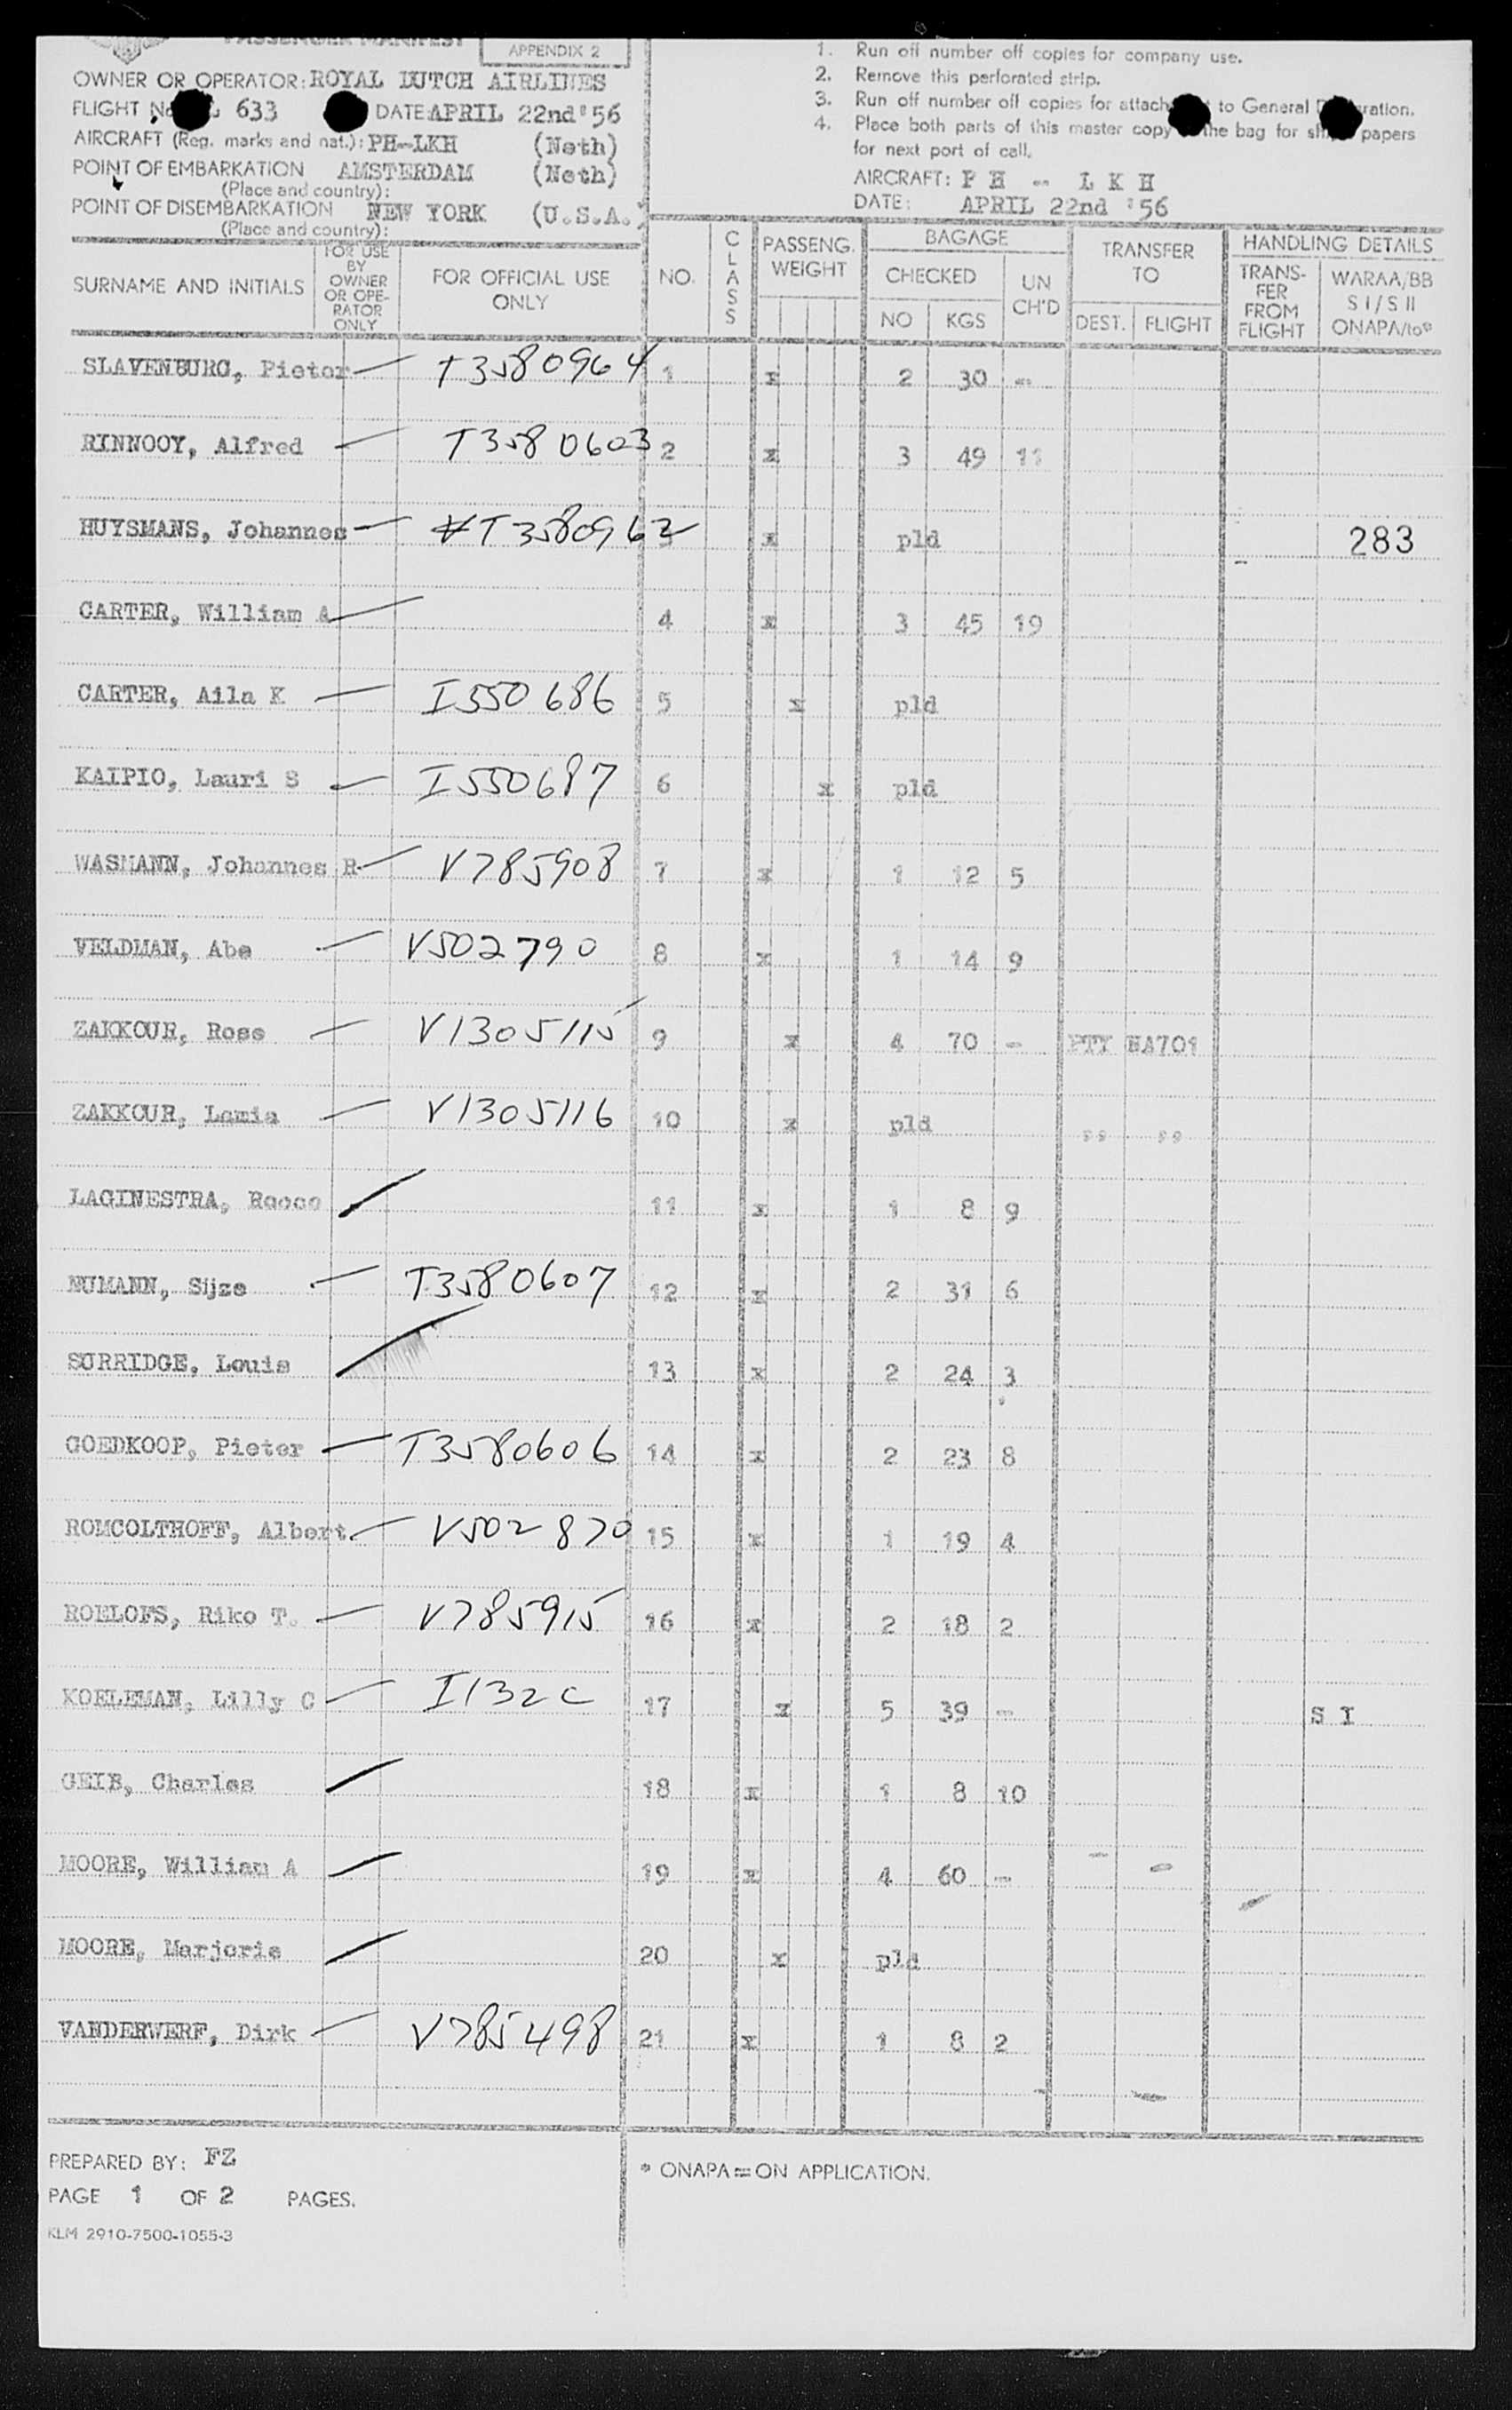 PASSENGER MANIFEST APPENDIX 2
OWNER OR OPERATOR: ROYAL DUTCH AIRLINES
FLIGHT No 633 DATE APRIL 22nd '56
AIRCRAFT (Reg. marks and nat.): PH-LKH (Neth)
POINT OF EMBARKATION AMSTERDAM (Neth)
(Place and country):
POINT OF DISEMBARKATION NEW YORK (U.S.A.)
(Place and country):
1. Run off number off copies for company use.
2. Remove this perforated strip.
3. Run off number off copies for to General
4. Place both parts of this master copy the bag for papers
for next port of call.
AIRCRAFT: P H - L K H
DATE: APRIL 22nd '56
SURNAME AND INITIALS FOR USE BY OWNER OR OPERATOR ONLY FOR OFFICIAL USE ONLY NO. CLASS PASSENG. WEIGHT BAGAGE CHECKED NO KGS UN CH'D TRANSFER TO DEST. FLIGHT HANDLING DETAILS TRANS-FER FROM FLIGHT WARAA/BB S I/S II ONAPA/to*
SLAVENBURG, Pieter T3580964 1 x 2 30 -
RINNOOY, Alfred T3580603 2 x 3 49 11
HUYSMANS, Johannes T3580962 3 x pld 283
CARTER, William A 4 x 3 45 19
CARTER, Aila K I550686 5 x pld
KAIPIO, Lauri S I550687 6 x pld
WASMANN, Johannes R V785908 7 x 1 12 5
VELDMAN, Abe V502790 8 x 1 14 9
ZAKKOUR, Rose V1305115 9 x 4 70 - PTY NA701
ZAKKOUR, Lamia V1305116 10 x pld " "
LAGINESTRA, Rocco 11 x 1 8 9
NUMANN, Sijze T3580607 12 x 2 31 6
SURRIDGE, Louis 13 x 2 24 3
GOEDKOOP, Pieter T3580606 14 x 2 23 8
ROMCOLTHOFF, Albert V502870 15 x 1 19 4
ROELOFS, Riko T. V785915 16 x 2 18 2
KOELEMAN, Lilly C I132C 17 x 5 39 - S I
GEIB, Charles 18 x 1 8 10
MOORE, William A 19 x 4 60 -
MOORE, Marjorie 20 x pld
VANDERWERF, Dirk V785498 21 x 1 8 2
PREPARED BY: FZ
* ONAPA=ON APPLICATION.
PAGE 1 OF 2 PAGES.
KLM 2910-7500-1055-3